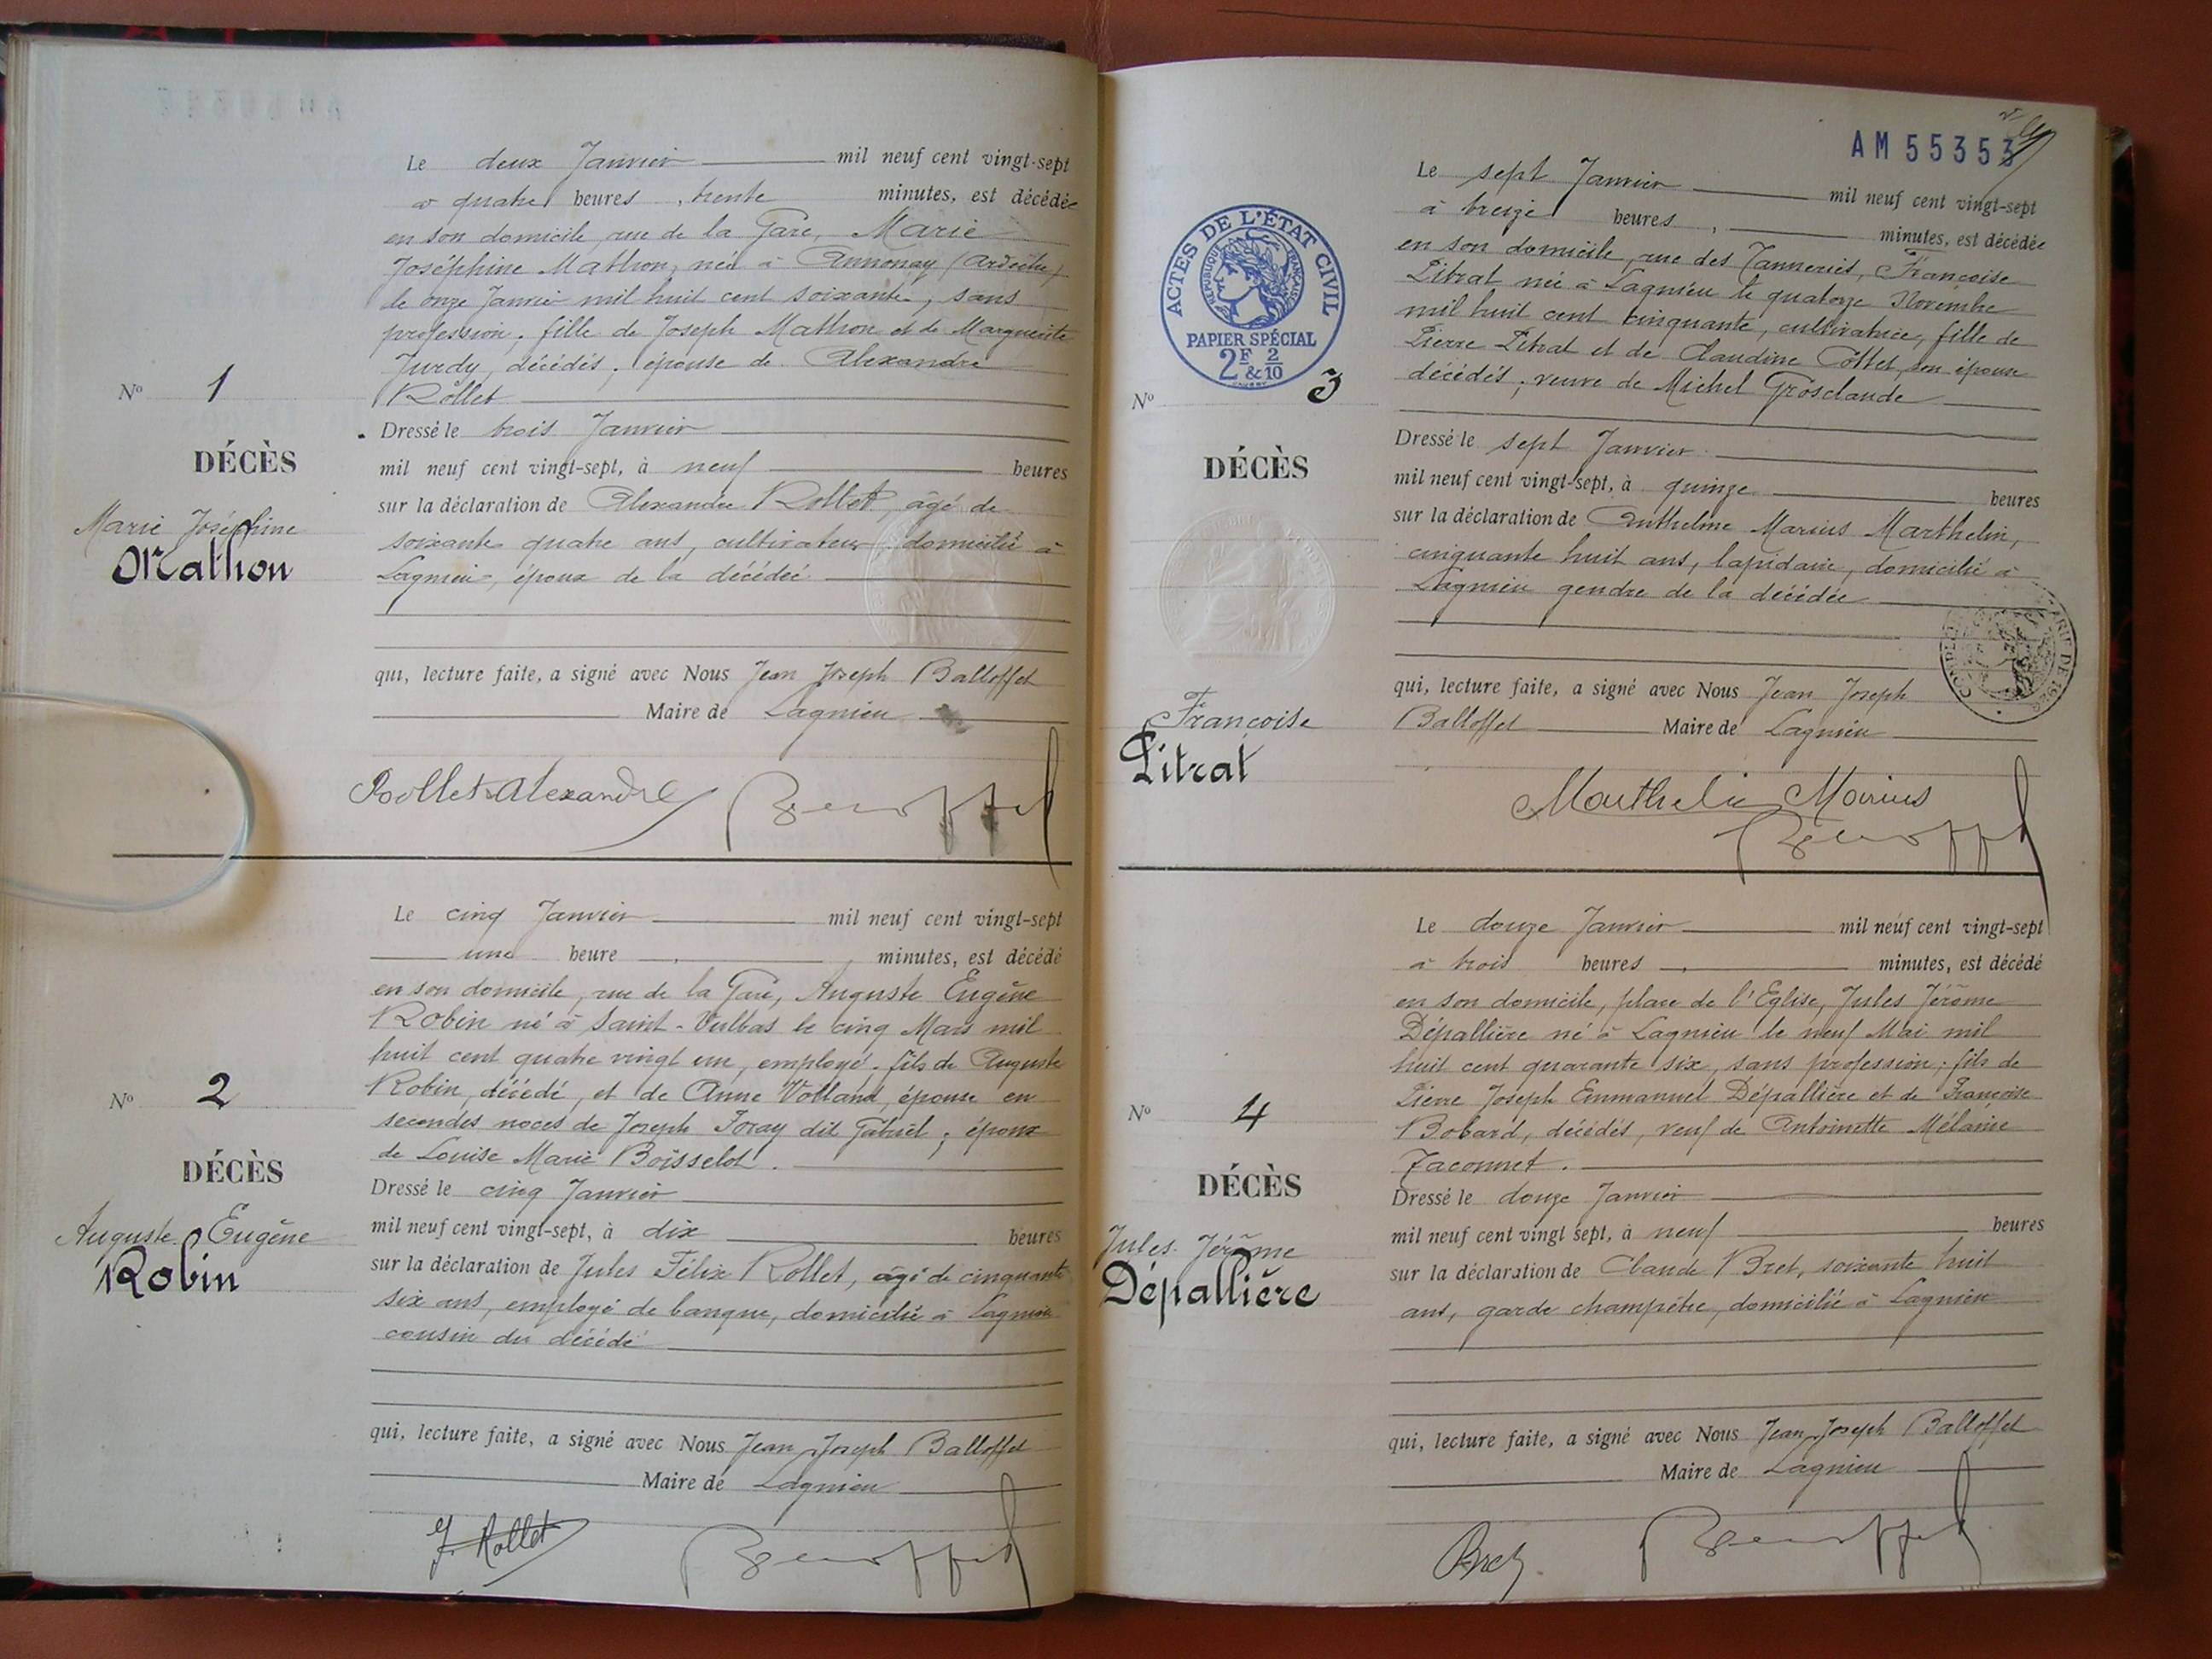 Le deux Janvier mil neuf cent vingt-sept
à quatre heures, trente minutes, est décédée
en son domicile, rue de la Gare, Marie
Joséphine Mathon, née à Annonay (Ardèche)
le onze Janvier mil huit cent soixante, sans
profession, fille de Joseph Mathon et de Marguerite
Jurdy, décédés; épouse de Alexandre
Rollet
Nº 1
DÉCÈS
Marie Joséphine
Mathon
Dressé le trois Janvier
mil neuf cent vingt-sept, à neuf heures
sur la déclaration de Alexandre Rollet, âgé de
soixante quatre ans, cultivateur, domicilié à
Lagnieu, époux de la décédée
qui, lecture faite, a signé avec Nous Jean Joseph Balloffet
Maire de Lagnieu
Rollet Alexandre Balloffet
Le cinq Janvier mil neuf cent vingt-sept
une heure, minutes, est décédé
en son domicile, rue de la Gare, Auguste Eugène
Robin né à Saint-Vulbas le cinq Mars mil
huit cent quatre vingt un, employé, fils de Auguste
Robin, décédé, et de Anne Volland, épouse en
secondes noces de Joseph Foray dit Gabriel; époux
de Louise Marie Boisselot.
Nº 2
DÉCÈS
Auguste Eugène
Robin
Dressé le cinq Janvier
mil neuf cent vingt-sept, à dix heures
sur la déclaration de Jules Félix Rollet, âgé de cinquante
six ans, employé de banque, domicilié à Lagnieu
cousin du décédé
qui, lecture faite, a signé avec Nous Jean Joseph Balloffet
Maire de Lagnieu
J. Rollet Balloffet
AM 55353
ACTES DE L'ÉTAT CIVIL
RÉPUBLIQUE FRANÇAISE
PAPIER SPÉCIAL
2F & 2/10
Le sept Janvier mil neuf cent vingt-sept
à treize heures, minutes, est décédée
en son domicile, rue des Tanneries, Françoise
Pitrat née à Lagnieu le quatorze Novembre
mil huit cent cinquante, cultivatrice, fille de
Pierre Pitrat et de Claudine Cottet, son épouse
décédés; veuve de Michel Grosclaude
Nº 3
DÉCÈS
Françoise
Pitrat
Dressé le sept Janvier
mil neuf cent vingt-sept, à quinze heures
sur la déclaration de Anthelme Marius Marthelin,
cinquante huit ans, lapidaire, domicilié à
Lagnieu gendre de la décédée
qui, lecture faite, a signé avec Nous Jean Joseph
Balloffet Maire de Lagnieu
Marthelin Marius
Balloffet
Le douze Janvier mil neuf cent vingt-sept
à trois heures, minutes, est décédé
en son domicile, place de l'Eglise, Jules Jérôme
Dépallière né à Lagnieu le neuf Mai mil
huit cent quarante six, sans profession; fils de
Pierre Joseph Emmanuel Dépallière et de Françoise
Bobard, décédés, veuf de Antoinette Mélanie
Jaconnet.
Nº 4
DÉCÈS
Jules Jérôme
Dépallière
Dressé le douze Janvier
mil neuf cent vingt sept, à neuf heures
sur la déclaration de Claude Bret, soixante huit
ans, garde champêtre, domicilié à Lagnieu
qui, lecture faite, a signé avec Nous Jean Joseph Balloffet
Maire de Lagnieu
Bret Balloffet